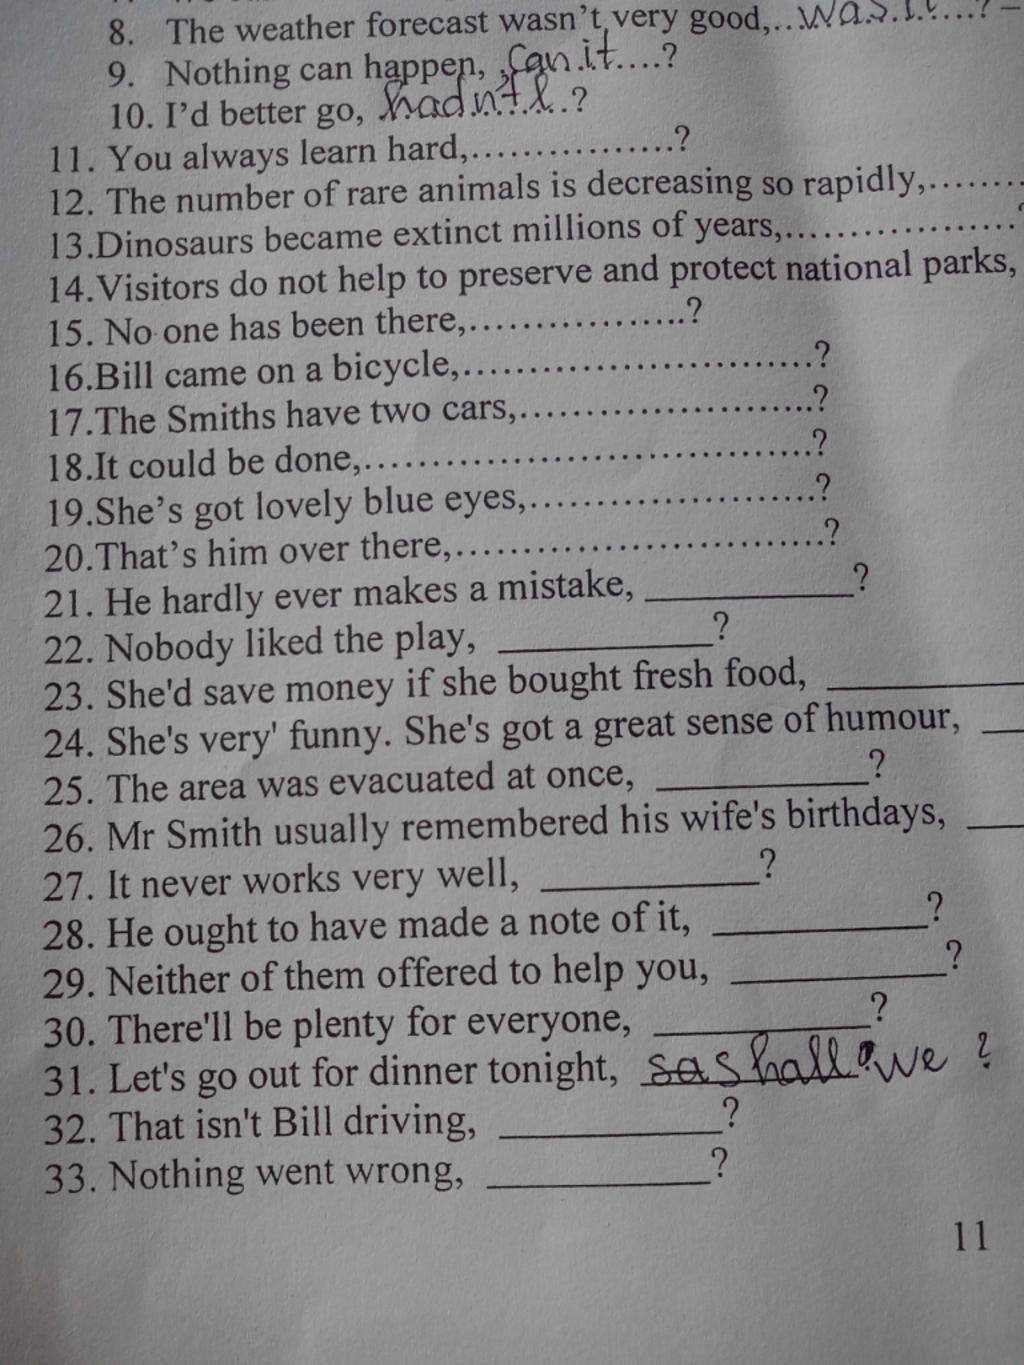 8. The weather forecast wasn't very good,...was.it....?
9. Nothing can happen, can.it....?
10. I'd better go, hadn't I..?
11. You always learn hard,................?
12. The number of rare animals is decreasing so rapidly,.......
13.Dinosaurs became extinct millions of years,..................?
14.Visitors do not help to preserve and protect national parks,
15. No one has been there,..................?
16.Bill came on a bicycle,............................?
17.The Smiths have two cars,........................?
18.It could be done,.....................................?
19.She's got lovely blue eyes,........................?
20.That's him over there,..............................?
21. He hardly ever makes a mistake, __________?
22. Nobody liked the play, __________?
23. She'd save money if she bought fresh food, __________
24. She's very' funny. She's got a great sense of humour, __
25. The area was evacuated at once, __________?
26. Mr Smith usually remembered his wife's birthdays, ___
27. It never works very well, __________?
28. He ought to have made a note of it, __________?
29. Neither of them offered to help you, __________?
30. There'll be plenty for everyone, __________?
31. Let's go out for dinner tonight, shall we ?
32. That isn't Bill driving, __________?
33. Nothing went wrong, __________?
11